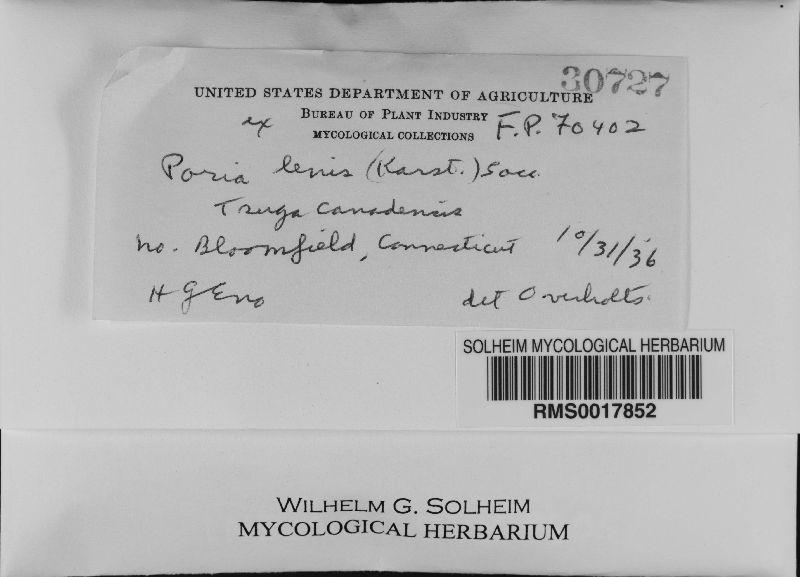 30727
UNITED STATES DEPARTMENT OF AGRICULTURE
BUREAU OF PLANT INDUSTRY
ex MYCOLOGICAL COLLECTIONS F.P. 70402
Poria lenis (Karst.) Sacc.
Tsuga canadensis
No. Bloomfield, Connecticut 10/31/36
H G Eno det Overholts.
SOLHEIM MYCOLOGICAL HERBARIUM
RMS0017852
WILHELM G. SOLHEIM
MYCOLOGICAL HERBARIUM